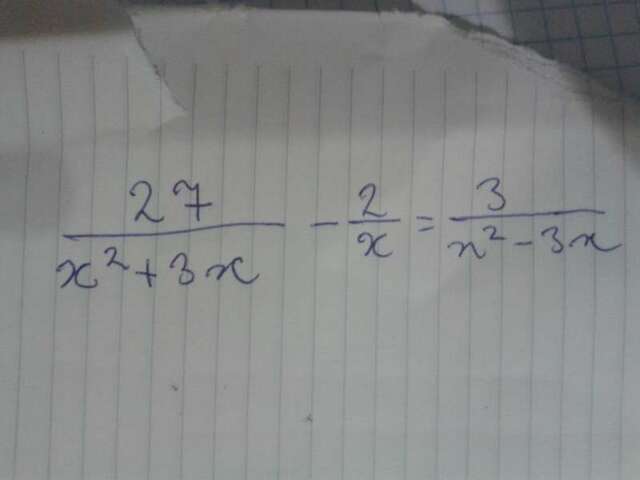 27/(x²+3x) - 2/x = 3/(x²-3x)